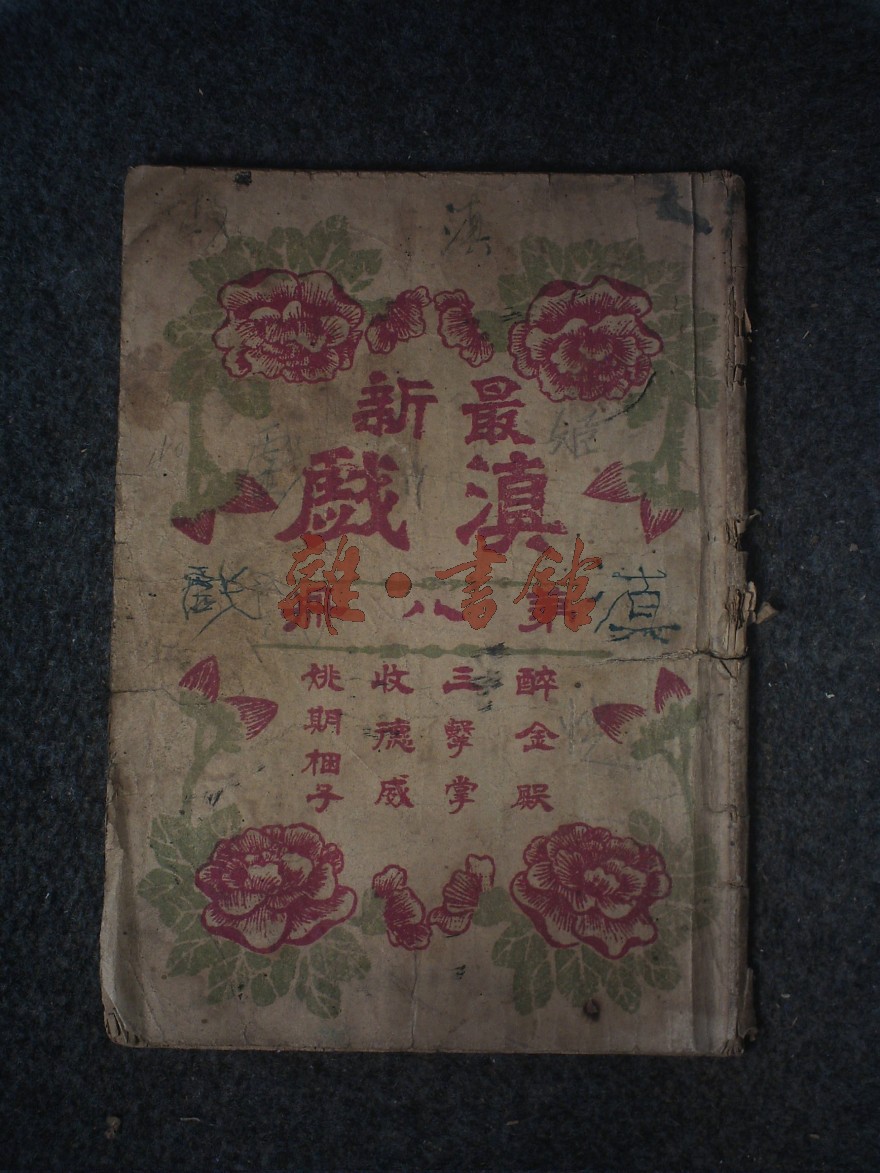 滇
最新
滇戲
姬
第八冊
雜·書館
滇戲
醉金殿
三擊掌
收德威
姚期梱子